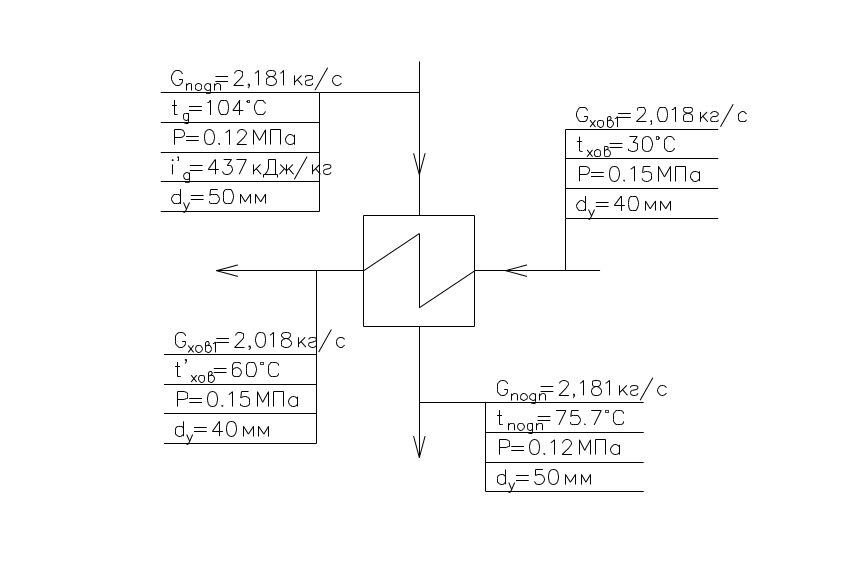 Gподп=2,181 кг/с
tд=104°С
P=0.12 МПа
i'д=437 кДж/кг
dу=50 мм
Gхов1=2,018 кг/с
tхов=30°С
P=0.15 МПа
dу=40 мм
Gхов1=2,018 кг/с
t'хов=60°С
P=0.15 МПа
dу=40 мм
Gподп=2,181 кг/с
tподп=75.7°С
P=0.12 МПа
dу=50 мм